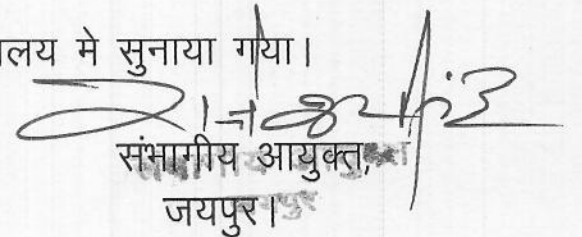 लय मे सुनाया गया।
संभागीय आयुक्त,
जयपुर।